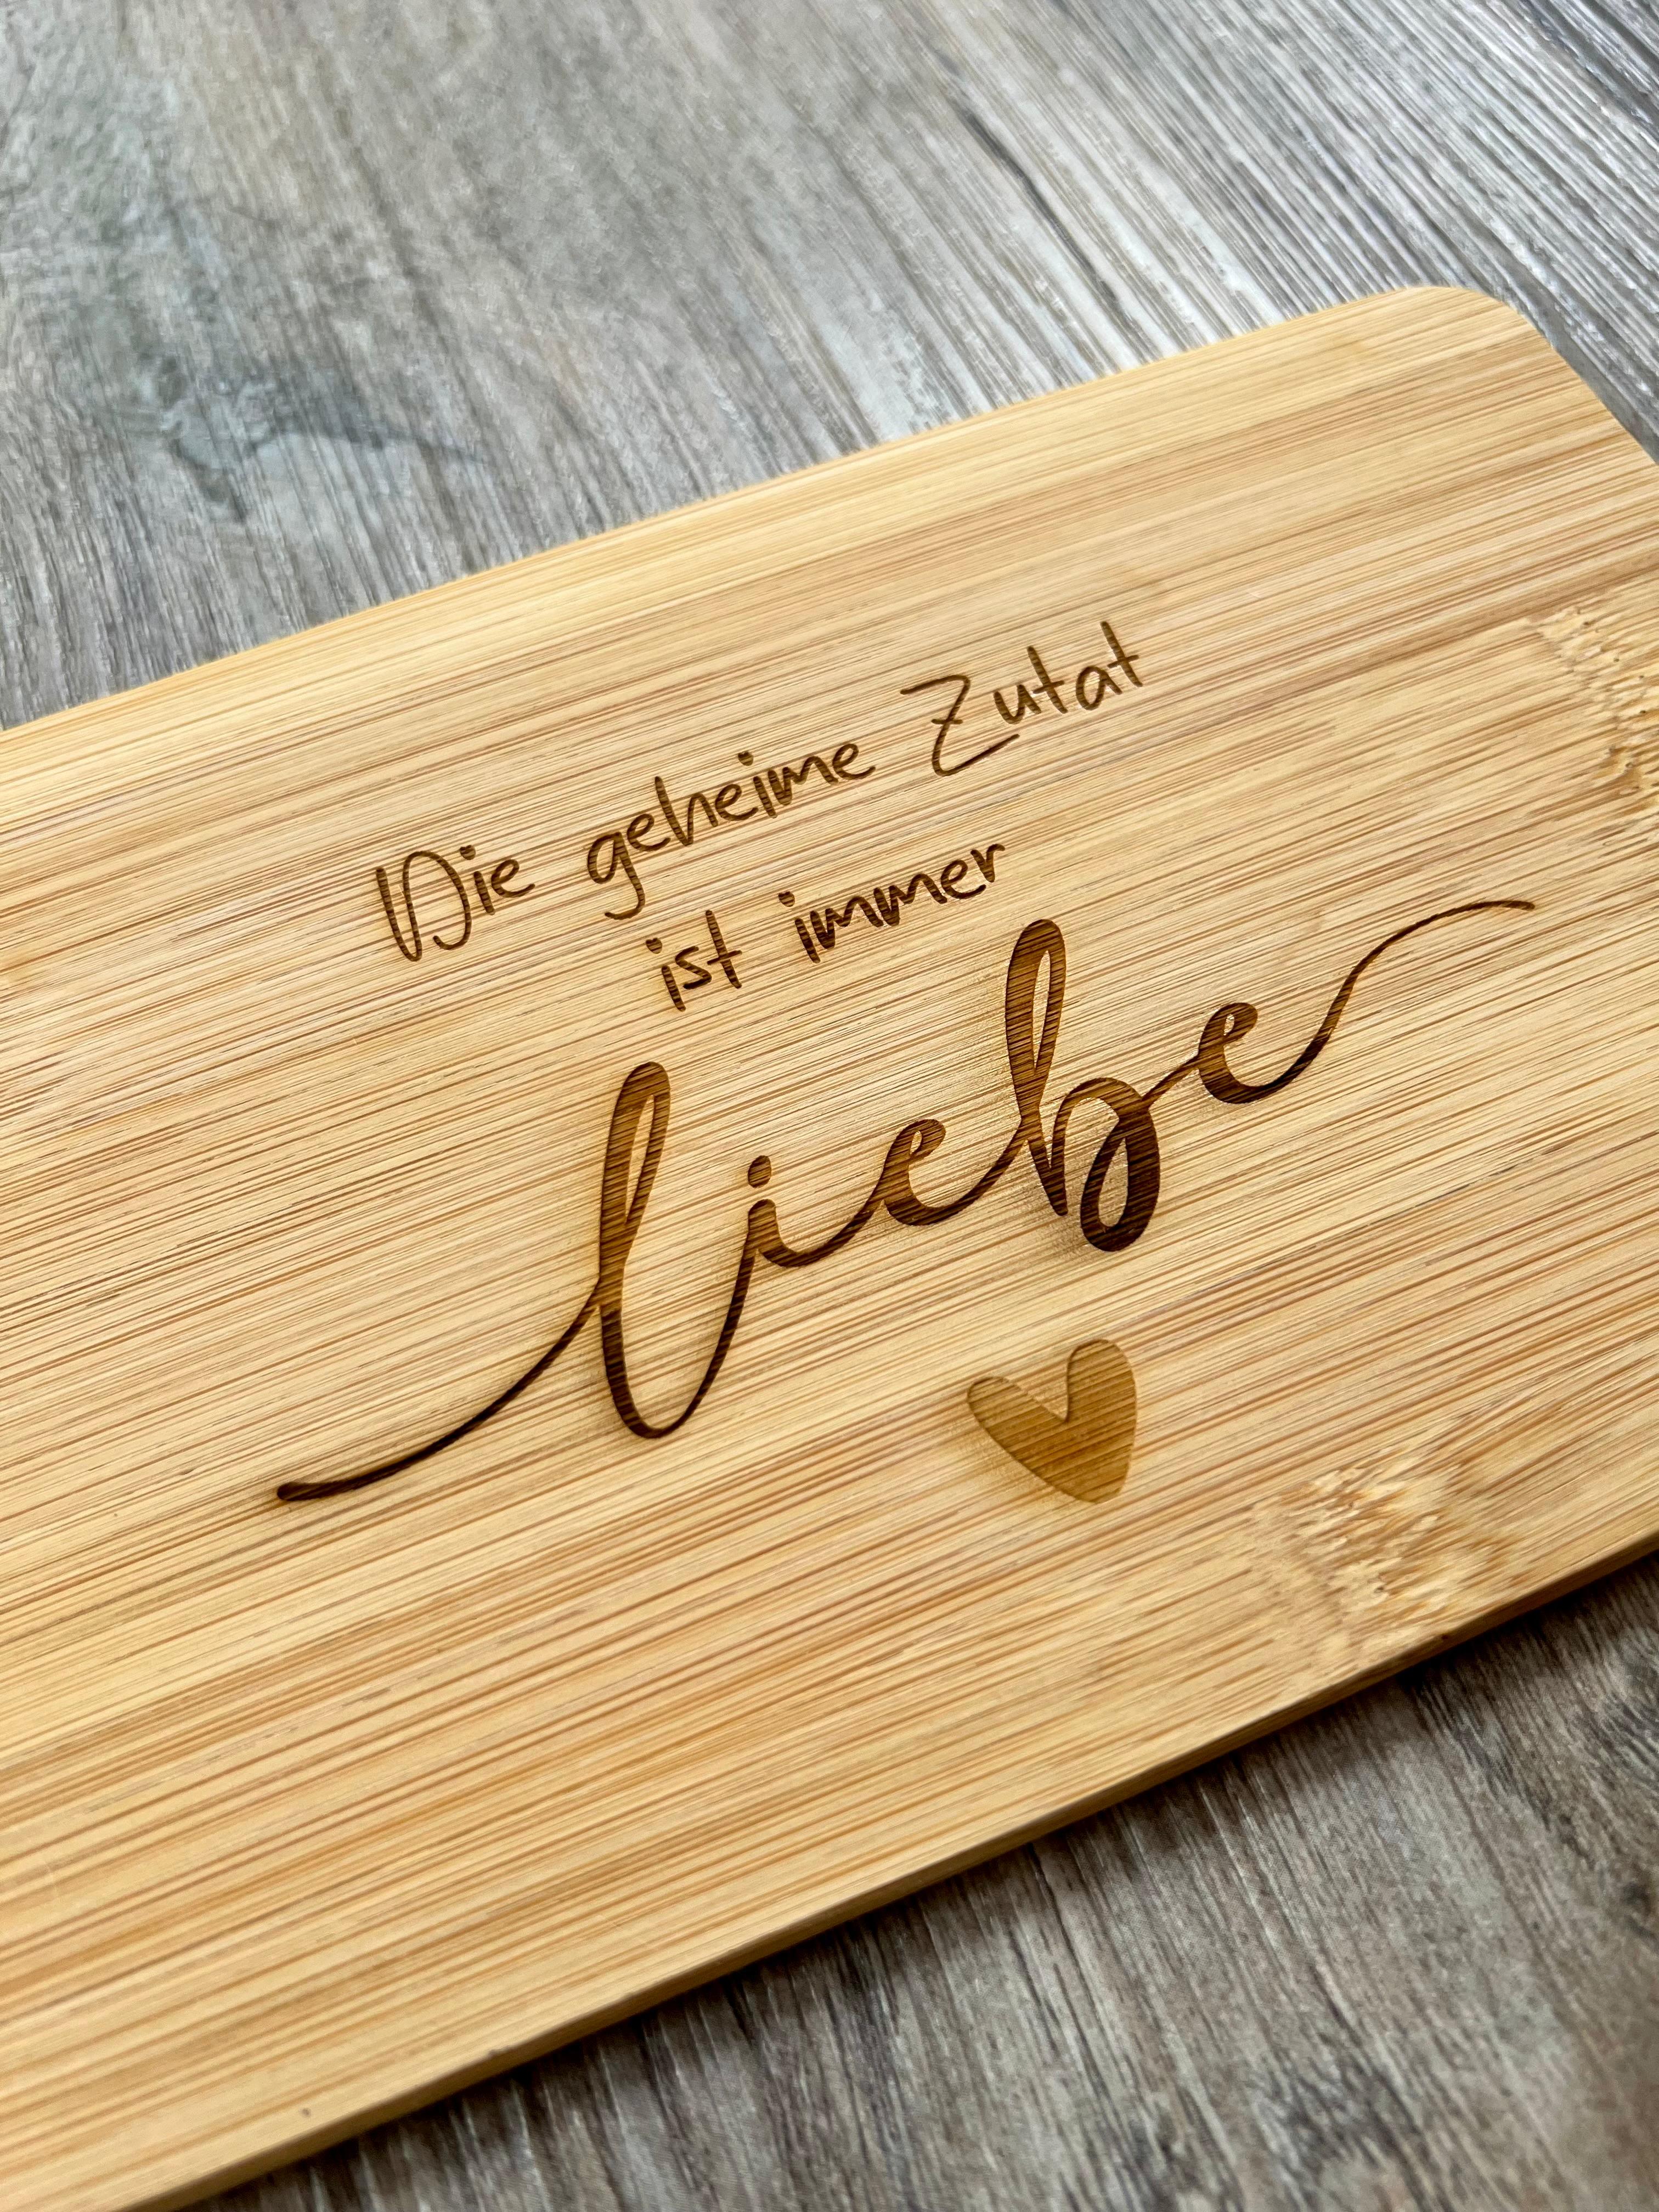 Die geheime Zutat
ist immer
liebe